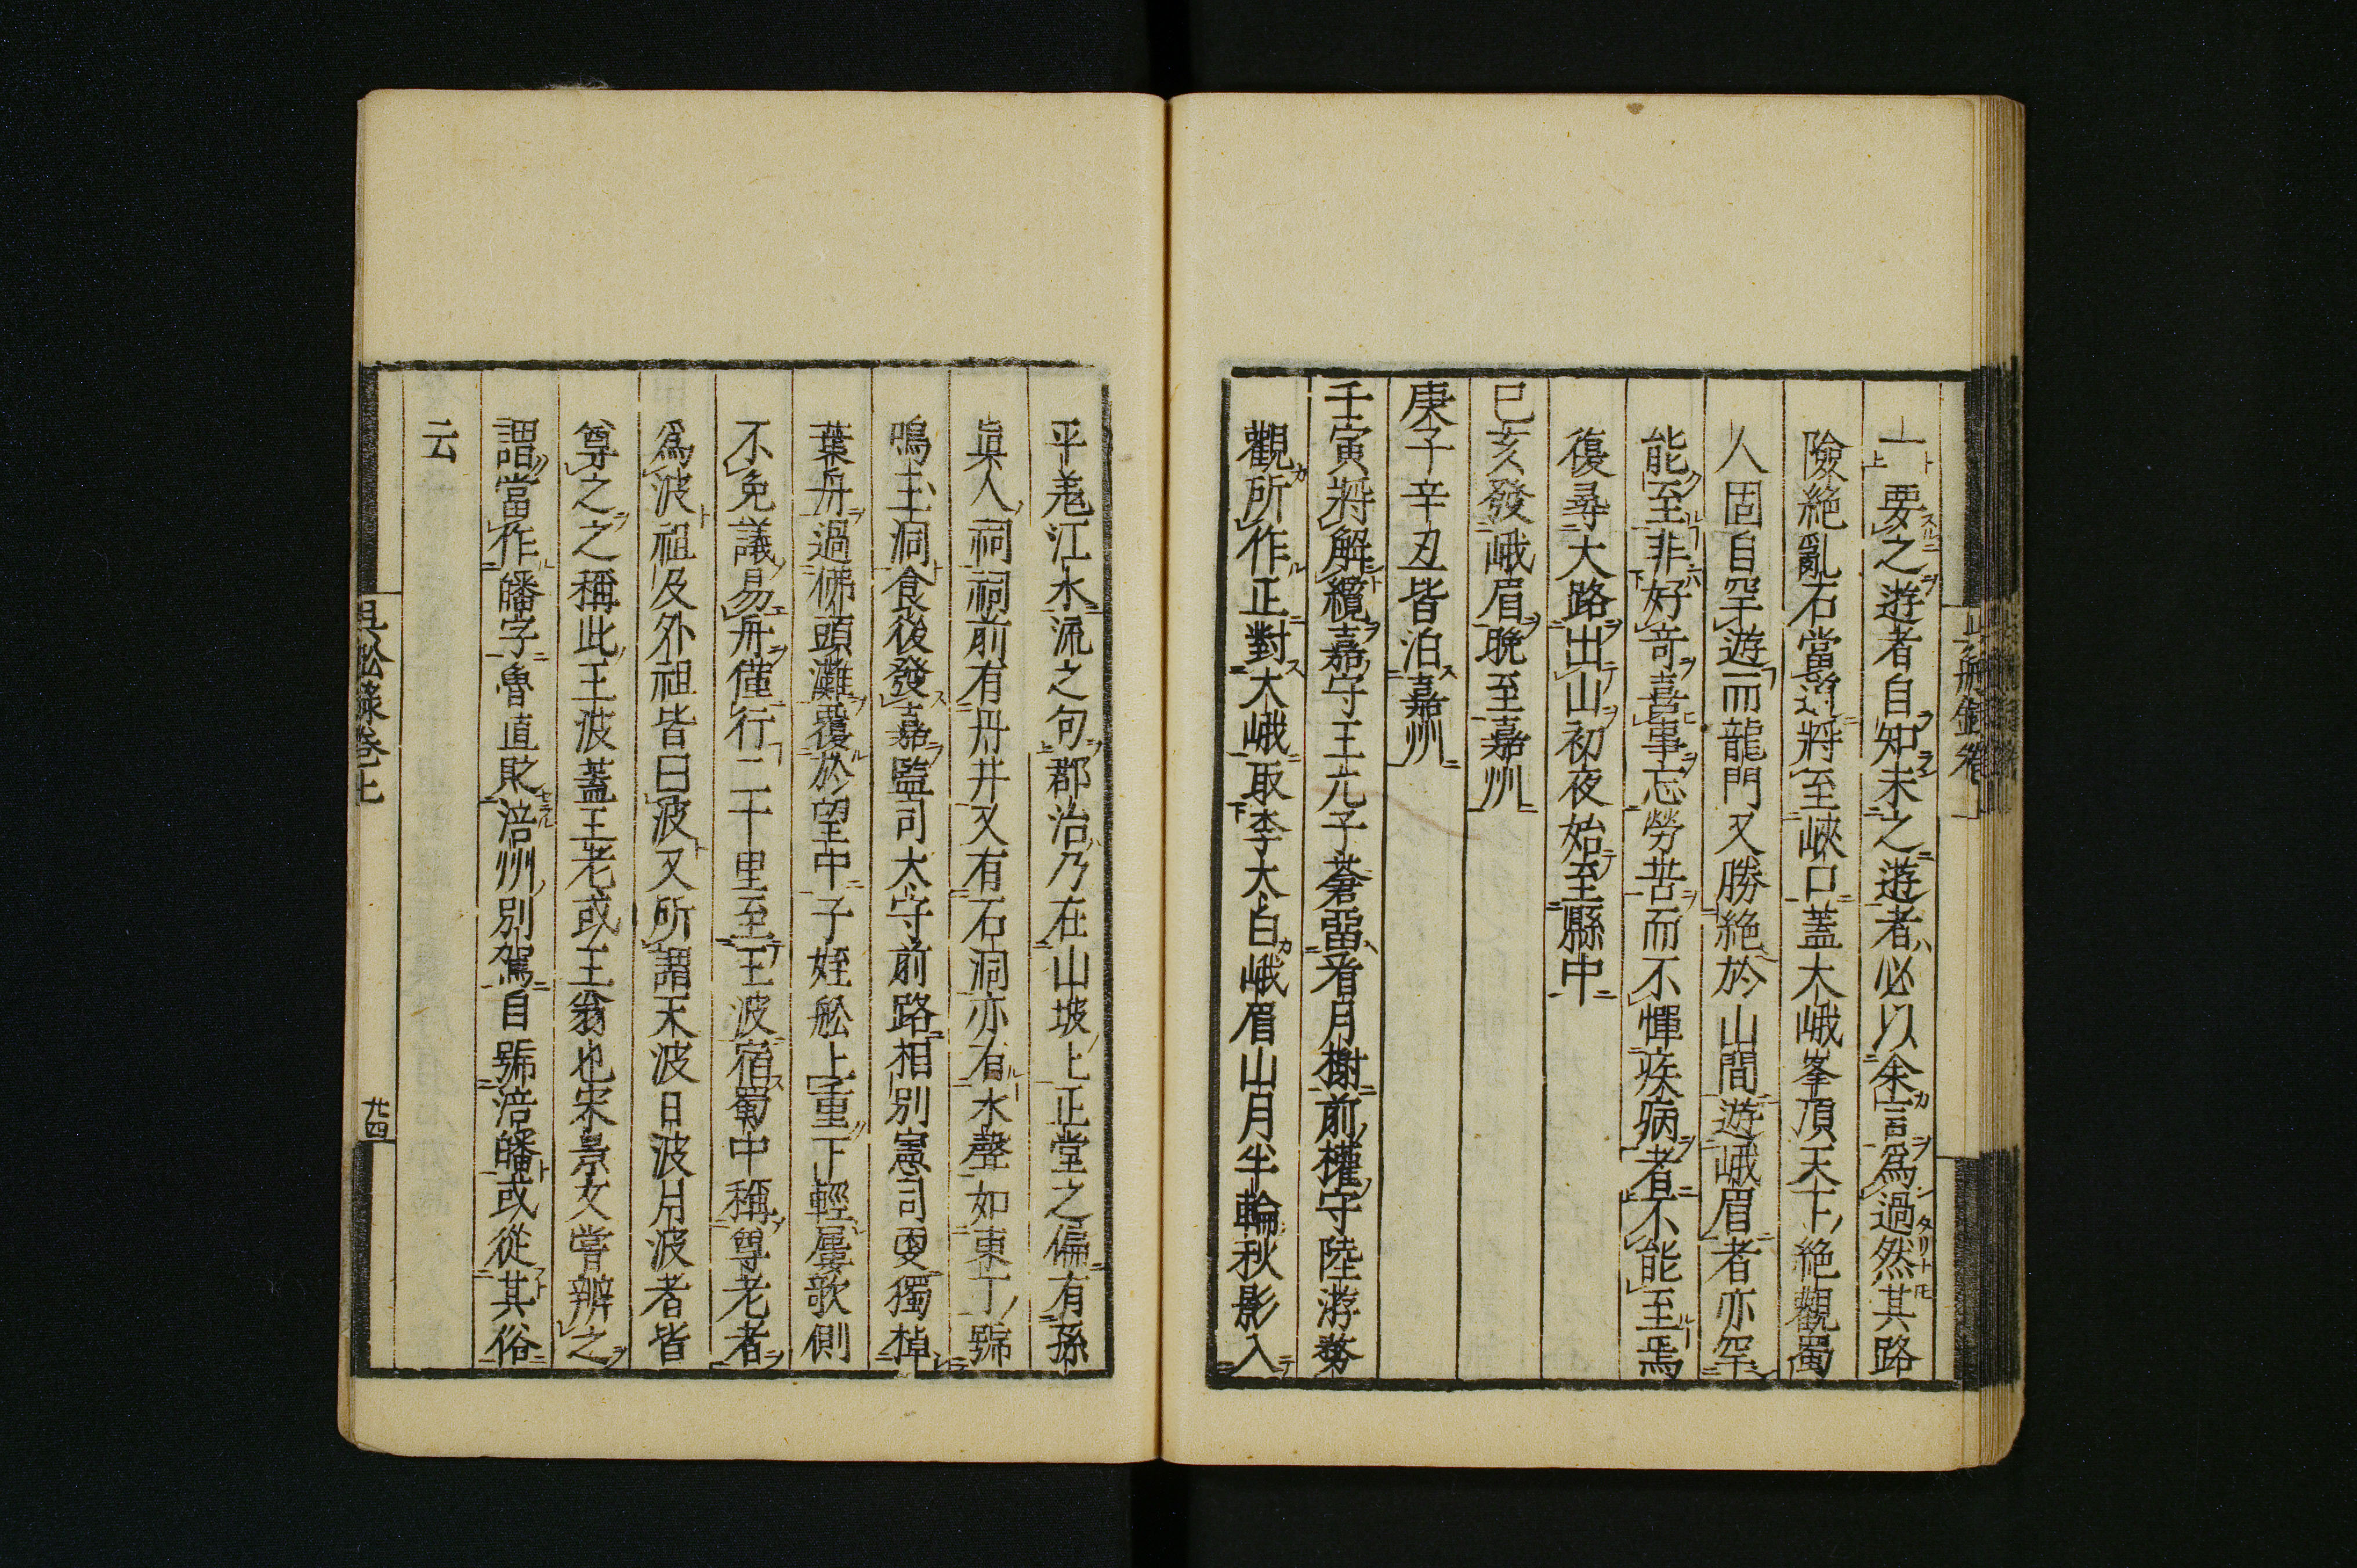 一要之遊者自知未之遊者必以余言爲過然其路
險絶亂石當道將至峽口蓋大峨峯頂天下絶觀蜀
人固自罕遊而龍門又勝絶於山間遊峨眉者亦罕
能至非好奇喜事忘勞苦而不憚疾病者不能至焉
復尋大路出山初夜始至縣中
巳亥發峨眉晩至嘉州
庚子辛丑皆泊嘉州
壬寅將解纜嘉守王亢子蒼畱看月榭前權守陸游務
觀所作正對大峨取李太白峨眉山月半輪秋影入
平羌江水流之句郡治乃在山坡上正堂之偏有孫
眞人祠祠前有丹井又有石洞亦有水聲如東丁號
鳴玉洞食後發嘉監司大守前路相別憲司更獨棹
葉舟過佛頭灘覆於望中子姪舩上重下輕屢歌側
不免議易舟僅行二十里至王波宿蜀中稱尊老者
爲波祖及外祖皆曰波又所謂天波日波月波者皆
尊之之稱此王波蓋王老或王翁也宋景文嘗辦之
謂當作皤字魯直貶涪州別駕自號涪皤或從其俗
云
吳舩錄卷上 廿四